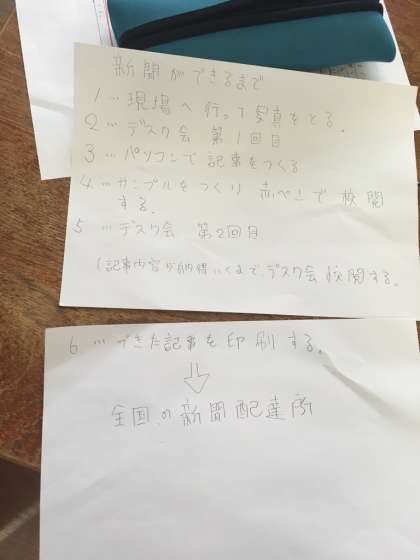 新聞ができるまで
1…現場へ行って写真をとる。
2…デスク会 第1回目
3…パソコンで記事をつくる
4…サンプルをつくり 赤ペンで校閲
する。
5…デスク会 第2回目
(記事内容が納得いくまで、デスク会 校閲する。
6…できた記事を印刷する。
⇩
全国の新聞配達所